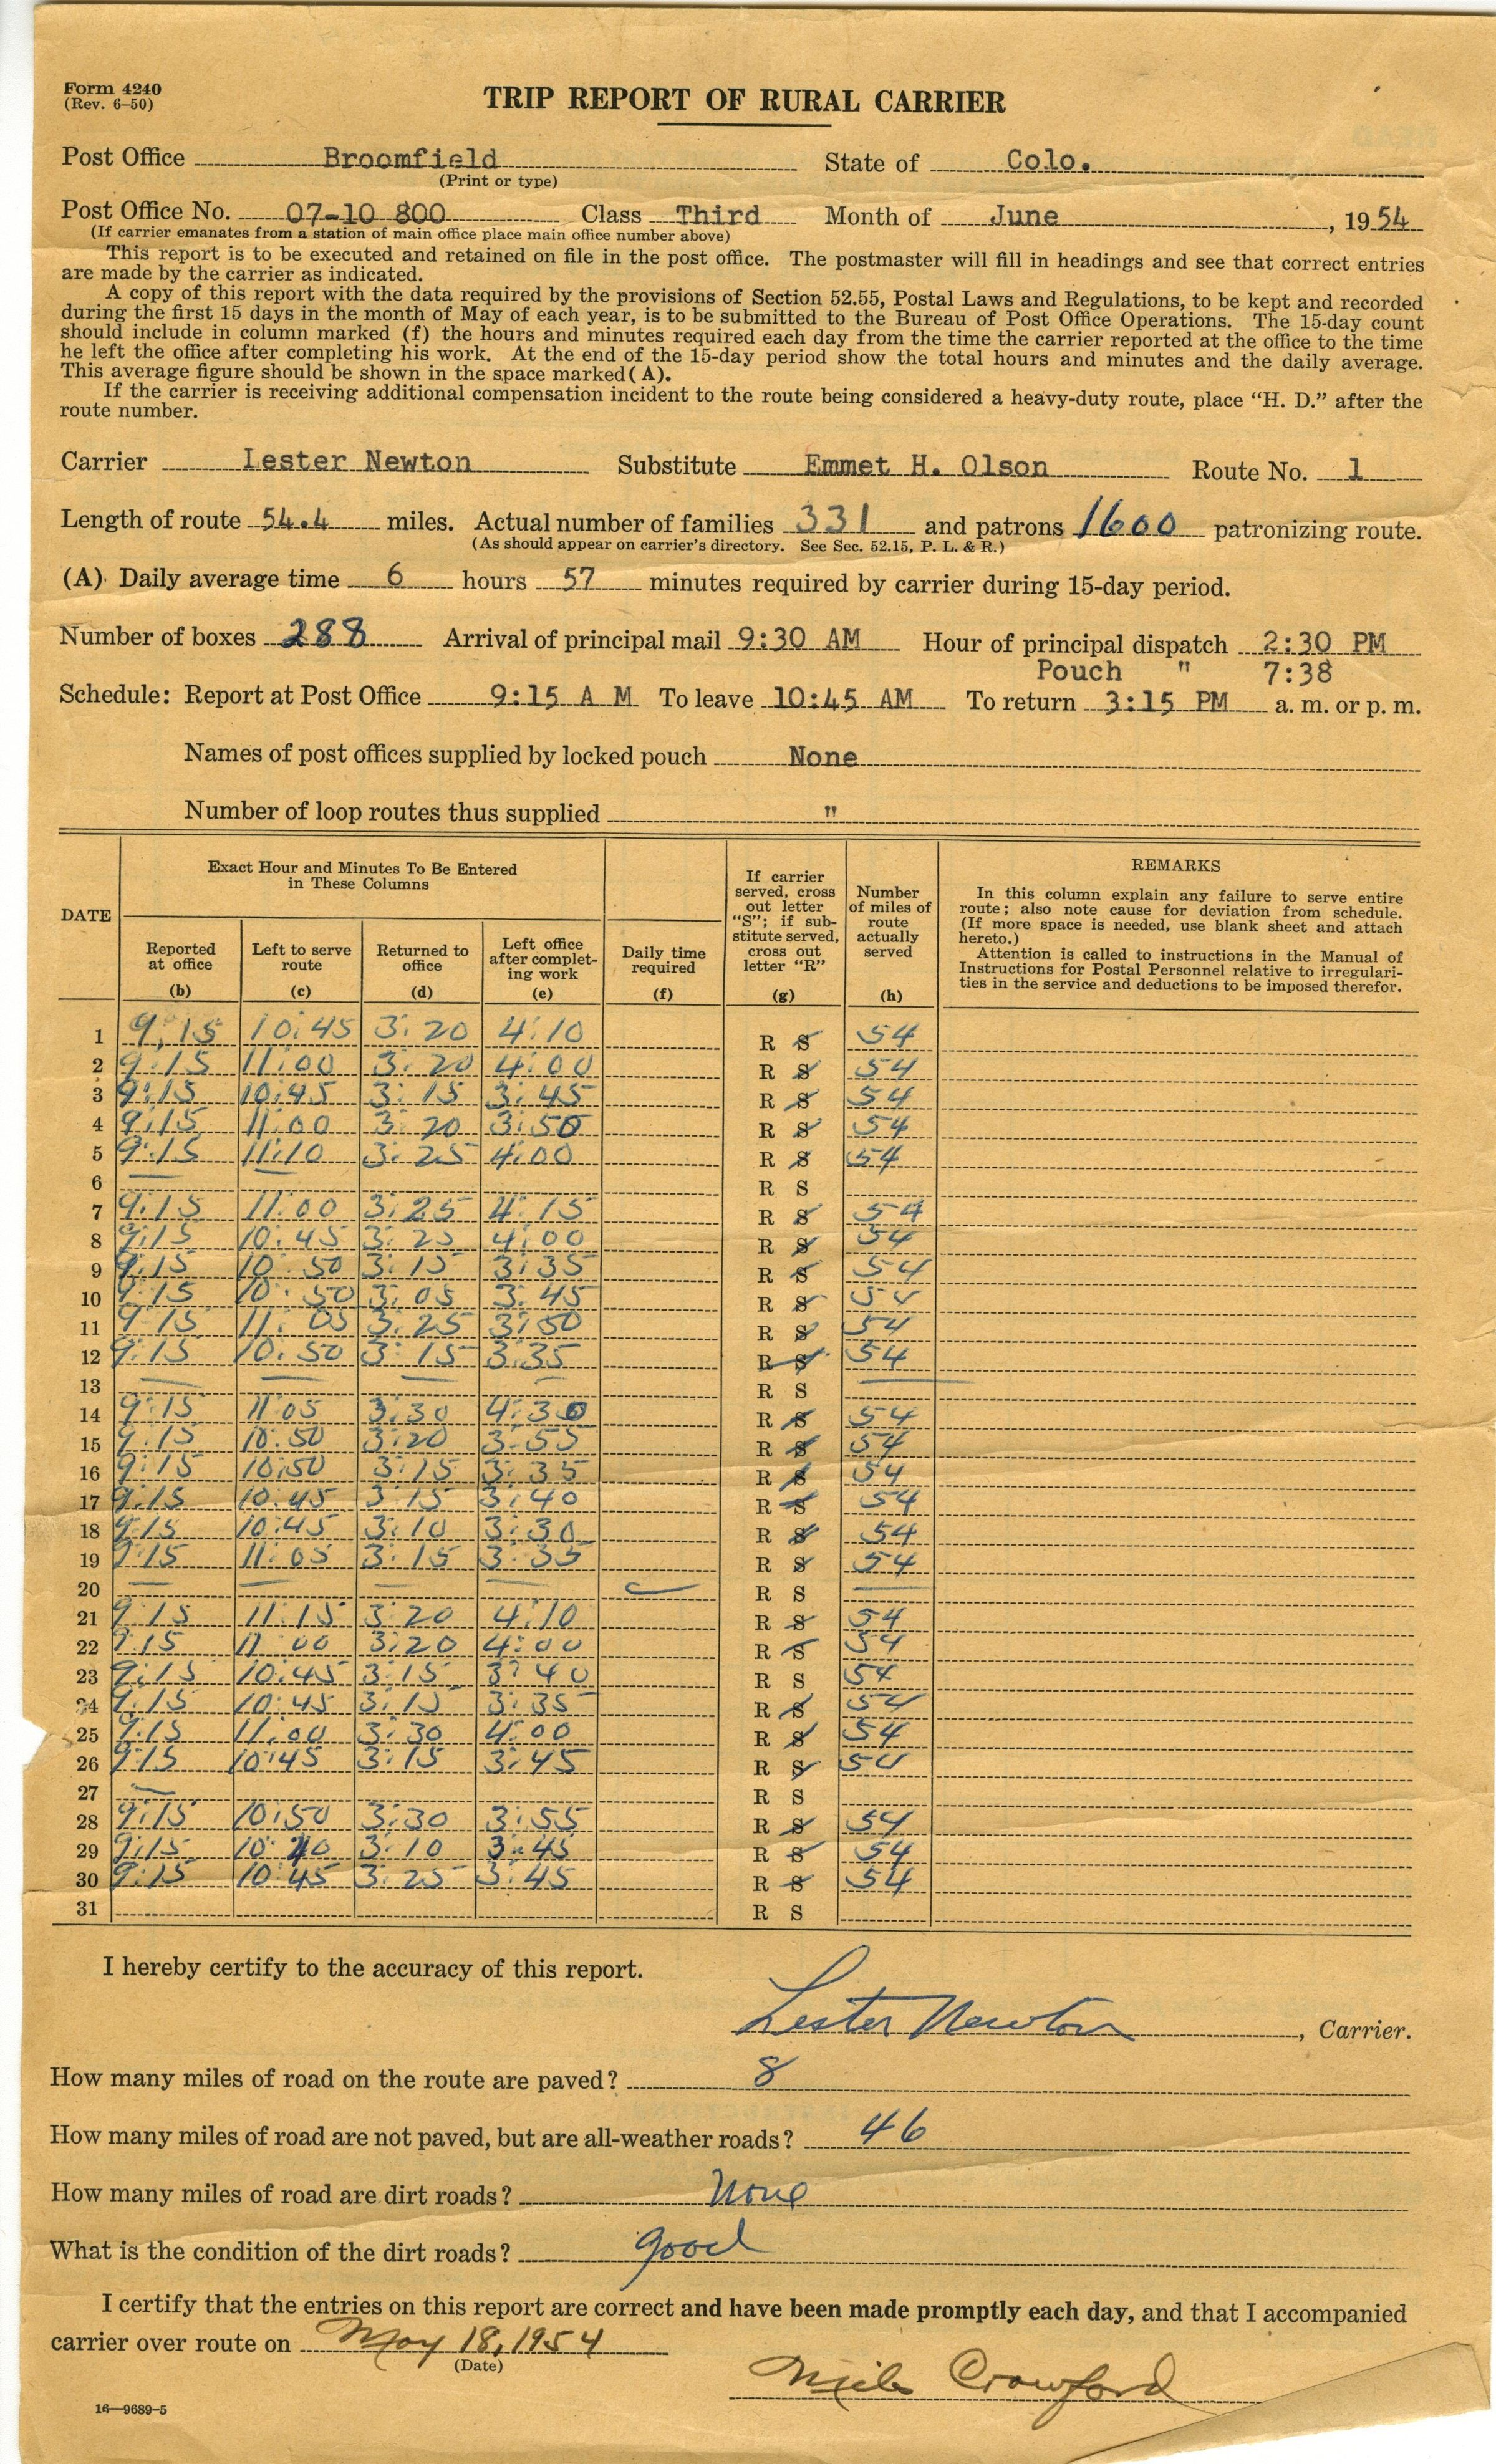 Form 4240
(Rev. 6–50)
TRIP REPORT OF RURAL CARRIER
Post Office Broomfield State of Colo.
(Print or type)
Post Office No. 07-10 800 Class Third Month of June , 1954
(If carrier emanates from a station of main office place main office number above)
This report is to be executed and retained on file in the post office. The postmaster will fill in headings and see that correct entries
are made by the carrier as indicated.
A copy of this report with the data required by the provisions of Section 52.55, Postal Laws and Regulations, to be kept and recorded
during the first 15 days in the month of May of each year, is to be submitted to the Bureau of Post Office Operations. The 15-day count
should include in column marked (f) the hours and minutes required each day from the time the carrier reported at the office to the time
he left the office after completing his work. At the end of the 15-day period show the total hours and minutes and the daily average.
This average figure should be shown in the space marked (A).
If the carrier is receiving additional compensation incident to the route being considered a heavy-duty route, place “H. D.” after the
route number.
Carrier Lester Newton Substitute Emmet H. Olson Route No. 1
Length of route 54.4 miles. Actual number of families 331 and patrons 1600 patronizing route.
(As should appear on carrier's directory. See Sec. 52.15, P. L. & R.)
(A) Daily average time 6 hours 57 minutes required by carrier during 15-day period.
Number of boxes 288 Arrival of principal mail 9:30 AM Hour of principal dispatch 2:30 PM
Pouch " 7:38
Schedule: Report at Post Office 9:15 A M To leave 10:45 AM To return 3:15 PM a. m. or p. m.
Names of post offices supplied by locked pouch None
Number of loop routes thus supplied "
DATE
Exact Hour and Minutes To Be Entered
in These Columns
Reported
at office
(b)
Left to serve
route
(c)
Returned to
office
(d)
Left office
after complet-
ing work
(e)
Daily time
required
(f)
If carrier
served, cross
out letter
“S”; if sub-
stitute served,
cross out
letter “R”
(g)
Number
of miles of
route
actually
served
(h)
REMARKS
In this column explain any failure to serve entire
route; also note cause for deviation from schedule.
(If more space is needed, use blank sheet and attach
hereto.)
Attention is called to instructions in the Manual of
Instructions for Postal Personnel relative to irregulari-
ties in the service and deductions to be imposed therefor.
1 9:15 10:45 3:20 4:10 R S 54
2 9:15 11:00 3:20 4:00 R S 54
3 9:15 10:45 3:15 3:45 R S 54
4 9:15 11:00 3:20 3:50 R S 54
5 9:15 11:10 3:25 4:00 R S 54
6 — — R S
7 9:15 11:00 3:25 4:15 R S 54
8 9:15 10:45 3:25 4:00 R S 54
9 9:15 10:50 3:15 3:35 R S 54
10 9:15 10:50 3:05 3:45 R S 54
11 9:15 11:05 3:25 3:50 R S 54
12 9:15 10:50 3:15 3:35 R S 54
13 — — — — R S —
14 9:15 11:05 3:30 4:30 R S 54
15 9:15 10:50 3:20 3:55 R S 54
16 9:15 10:50 3:15 3:35 R S 54
17 9:15 10:45 3:15 3:40 R S 54
18 9:15 10:45 3:10 3:30 R S 54
19 9:15 11:05 3:15 3:35 R S 54
20 — — — — — R S —
21 9:15 11:15 3:20 4:10 R S 54
22 9:15 11:00 3:20 4:00 R S 54
23 9:15 10:45 3:15 3:40 R S 54
24 9:15 10:45 3:15 3:35 R S 54
25 9:15 11:00 3:30 4:00 R S 54
26 9:15 10:45 3:15 3:45 R S 54
27 — R S
28 9:15 10:50 3:30 3:55 R S 54
29 9:15 10:40 3:10 3:45 R S 54
30 9:15 10:45 3:25 3:45 R S 54
31 R S
I hereby certify to the accuracy of this report.
Lester Newton , Carrier.
How many miles of road on the route are paved? 8
How many miles of road are not paved, but are all-weather roads? 46
How many miles of road are dirt roads? None
What is the condition of the dirt roads? good
I certify that the entries on this report are correct and have been made promptly each day, and that I accompanied
carrier over route on May 18, 1954
(Date)
Crawford
16—9689-5